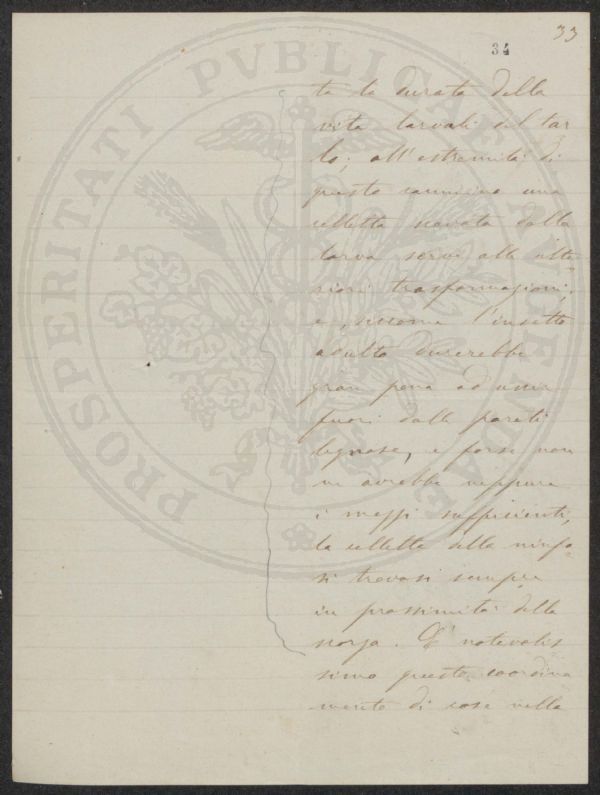 33
34
ta la durata della
vita larvale del tar
lo; all'estremità di
questo cammino una
celletta scavata dalla
larva serve alle ulte-
riori trasformazioni;
e, siccome l'insetto
adulto durerebbe
gran pena ad uscir
fuori dalle pareti
legnose, e forse non
ne avrebbe neppure
i mezzi sufficienti,
la celletta della ninfa
si trova si sempre
in prossimità della
scorza. È notevolis
simo questo coordina
mento di cose nella
PROSPERITATI PVBLICAE AVGENDAE